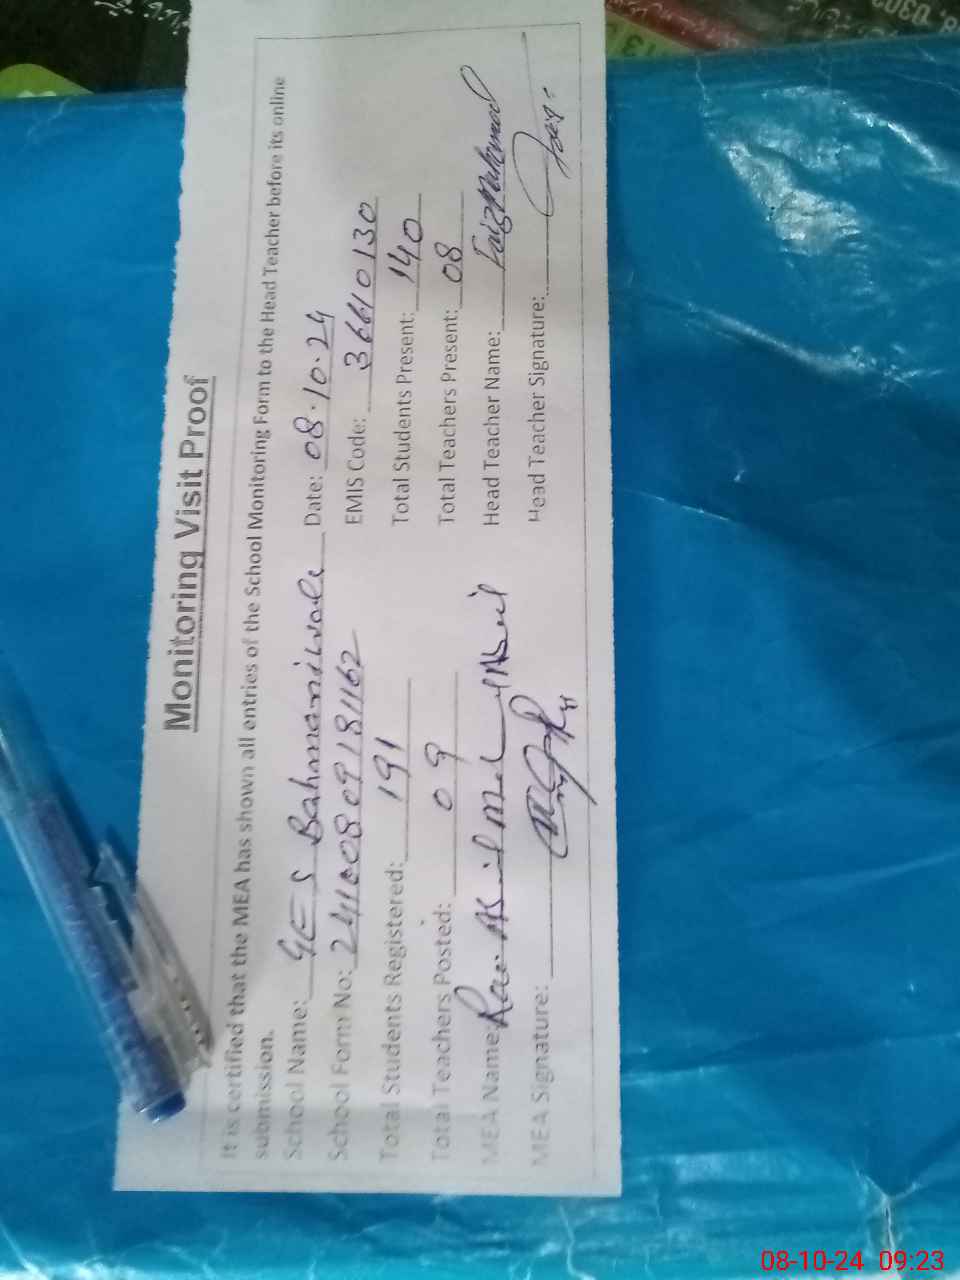 Monitoring Visit Proof
It is certified that the MEA has shown all entries of the School Monitoring Form to the Head Teacher before its online
submission.
School Name: GES Bahmaniwala Date: 08.10.24
School Form No: EMIS Code: 36610130
Total Students Registered: 191 Total Students Present: 140
Total Teachers Posted: 09 Total Teachers Present: 08
MEA Name: Head Teacher Name: Faiz Mehmood
MEA Signature: Head Teacher Signature:
08-10-24 09:23